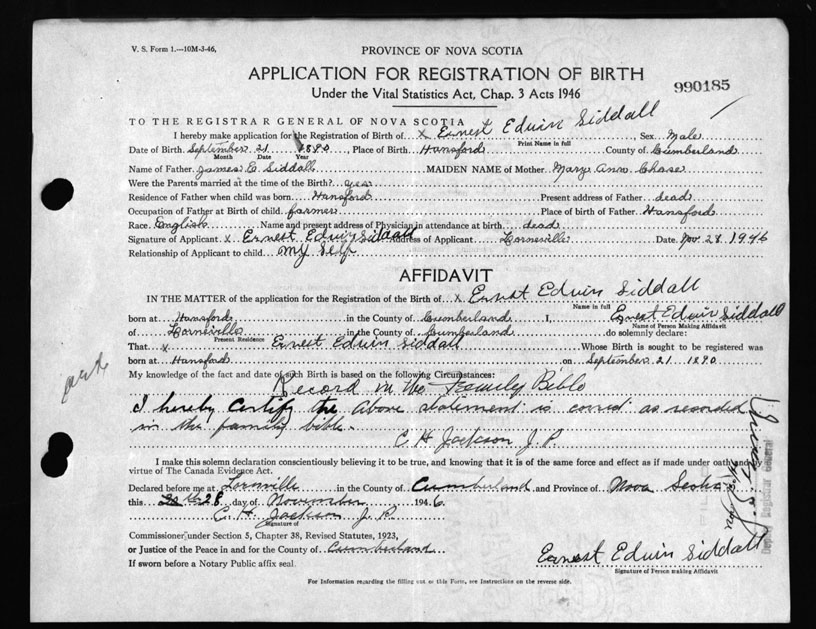 V. S. Form 1.—10M-3-46,
PROVINCE OF NOVA SCOTIA
APPLICATION FOR REGISTRATION OF BIRTH
990185
Under the Vital Statistics Act, Chap. 3 Acts 1946
TO THE REGISTRAR GENERAL OF NOVA SCOTIA
I hereby make application for the Registration of Birth of x Ernest Edwin Siddall Sex Male
Print Name in full
Date of Birth September 21 1890, Place of Birth Hansford County of Cumberland
Month Date Year
Name of Father James E Siddall MAIDEN NAME of Mother Mary Ann Chase
Were the Parents married at the time of the Birth? yes
Residence of Father when child was born Hansford Present address of Father dead
Occupation of Father at Birth of child farmer Place of birth of Father Hansford
Race English Name and present address of Physician in attendance at birth dead
Signature of Applicant x Ernest Edwin Siddall Address of Applicant Lorneville Date Nov 28 1946
Relationship of Applicant to child my self
AFFIDAVIT
IN THE MATTER of the application for the Registration of the Birth of x Ernest Edwin Siddall
Name in full
born at Hansford in the County of Cumberland I, Ernest Edwin Siddall
Name of Person Making Affidavit
of Lorneville in the County of Cumberland do solemnly declare:
Present Residence
That x Ernest Edwin Siddall Whose Birth is sought to be registered was
born at Hansford on September 21 1890
My knowledge of the fact and date of such Birth is based on the following Circumstances:
Record in the Family Bible
I hereby certify the above statement is correct as recorded
in the family bible.
C H Jackson J. P.
I make this solemn declaration conscientiously believing it to be true, and knowing that it is of the same force and effect as if made under oath and
virtue of The Canada Evidence Act.
Declared before me at Lornville in the County of Cumberland and Province of Nova Scotia
this 28 day of November 1946
C. H. Jackson J. P.
Signature of
Commissioner under Section 5, Chapter 38, Revised Statutes, 1923,
or Justice of the Peace in and for the County of Cumberland
If sworn before a Notary Public affix seal.
Ernest Edwin Siddall
Signature of Person making Affidavit
For Information regarding the filling out of this Form, see Instructions on the reverse side.
Deputy Registrar General